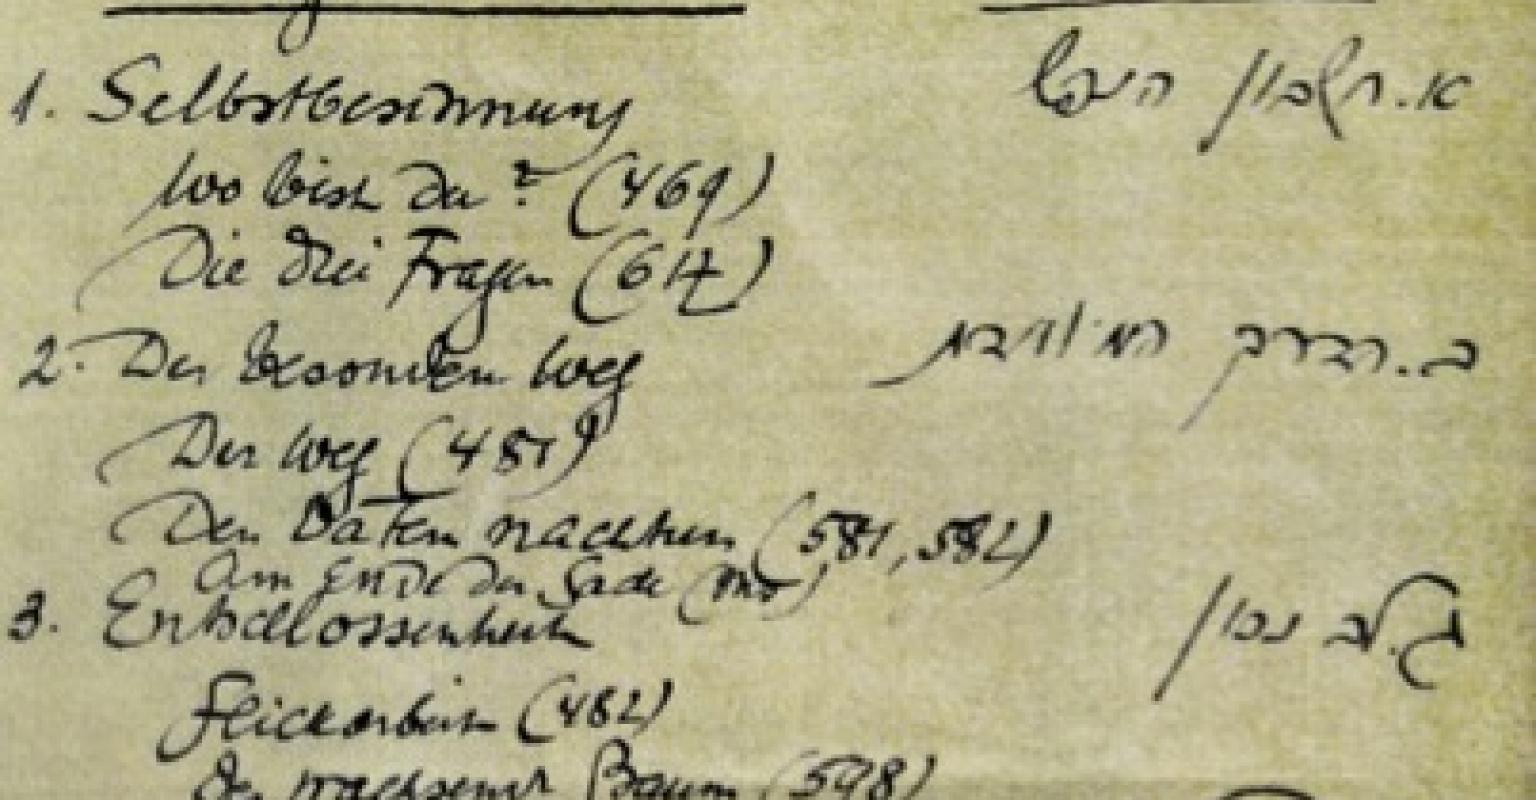 1. Selbstbesinnung
א. חשבון הנפש
Wo bist du? (469)
Die drei Fragen (617)
2. Der besondere Weg
ב. הדרך המיוחדת
Der Weg (481)
Den Vätern nachtun (581, 582)
Am Ende der
3. Entschlossenheit
ג. לב נכון
Flickarbeit (482)
Der wachsende Baum (598)